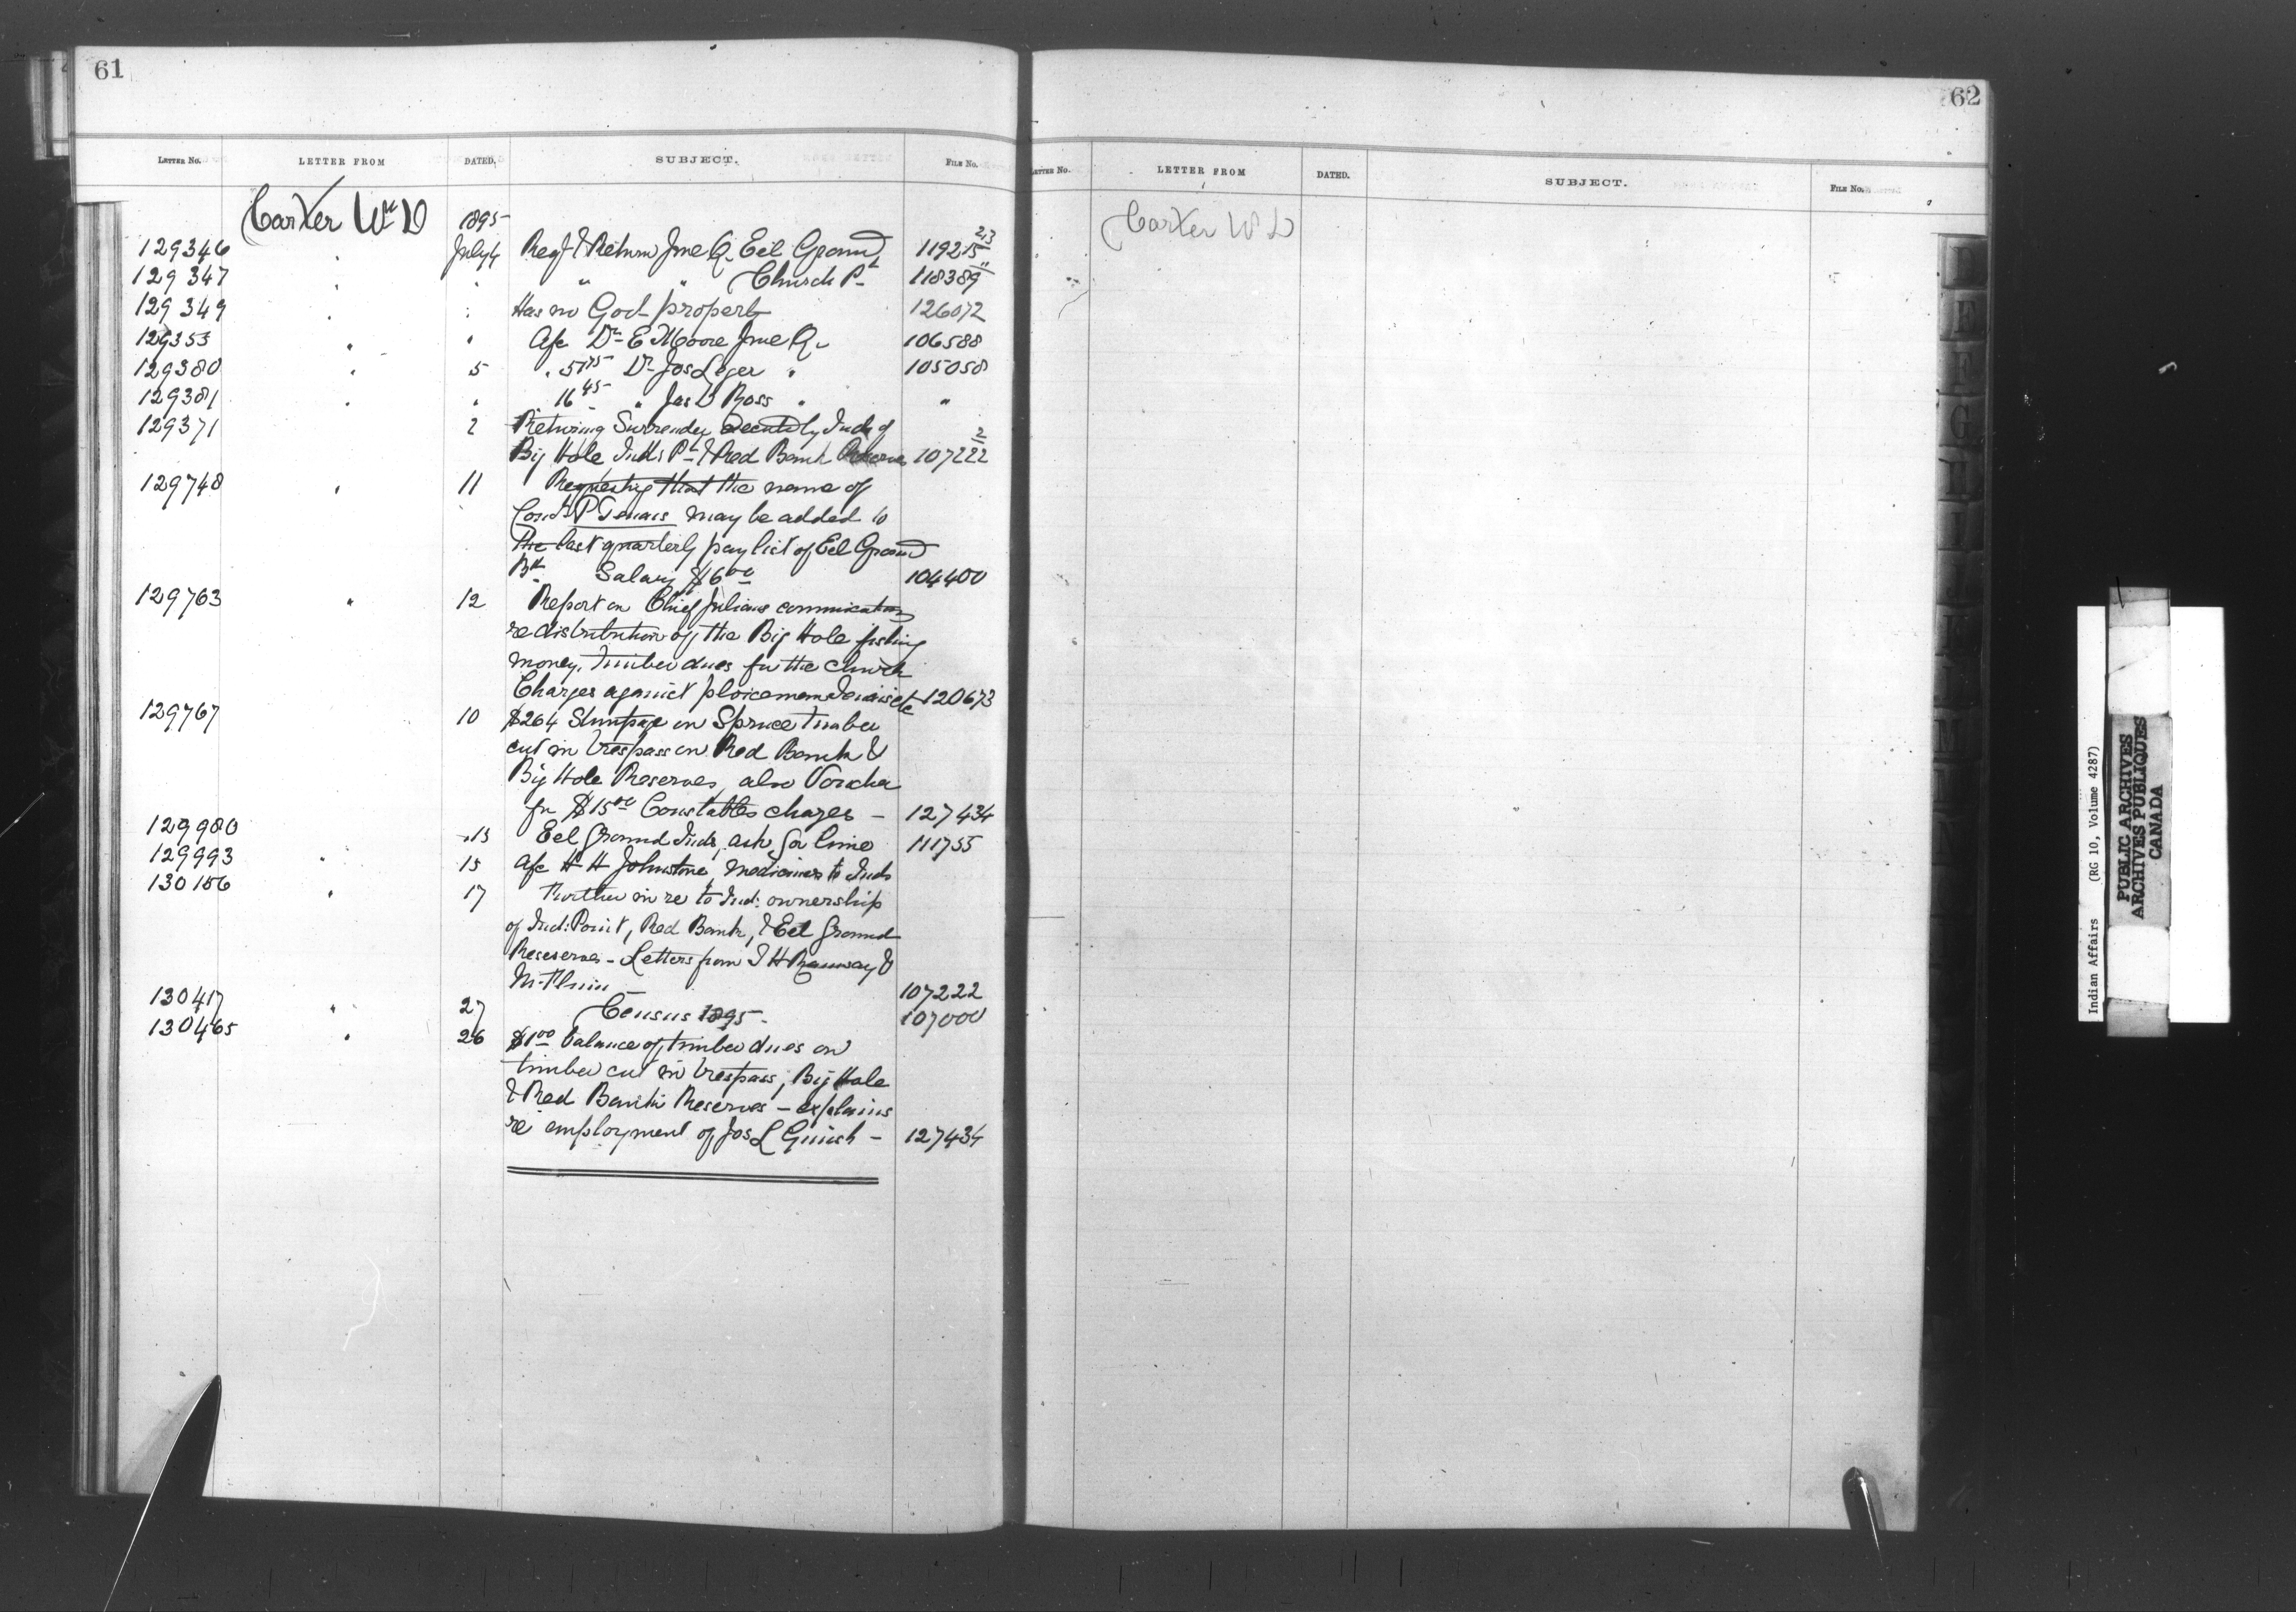 61
LETTER No. LETTER FROM DATED. SUBJECT. FILE No.
Carter Wm D 1895
129346 " July 4 Regt & Return June Q. Eel Ground 119215 23
129347 " " " " Church Pt 118389 "
129349 " " Has no Govt property 126072
129353 " " A/c Dr E Moore June Q. 106588
129380 " 5 " 51 75 Dr Jos Leger " 105058
129381 " " 16 45 " Jas D Ross " "
129371 2 Returning Surrender by Inds of
Big Hole Inds Pt & Red Bank Reserves 107222 2
129748 " 11 Requesting that the name of
P Tenais may be added to
the last quarterly pay list of Eel Ground
Salary $6 00 104400
129763 " 12 Report on Chief Julians communication
re distribution of the Big Hole fishing
money, timber dues for the church
Charges against ploiceman etc 120673
129767 10 $264 Stumpage on Spruce timber
cut in trespass on Red Bank &
Big Hole Reserves, also Voucher
for $15 00 Constables charges – 127434
129980 13 Eel Ground Inds, ask for lime 111755
129993 " 15 A/c H H Johnstone, medicines to Inds
130156 " 17 Further in re to Ind: ownership
of Ind: Point, Red Bank, & Eel Ground
Reserves – Letters from &
107222
130417 " 27 Census 1895 – 107000
130465 " 26 $1 00 balance of timber dues on
timber cut in trespass, Big Hole
& Red Bank Reserves – explains
re employment of Jos L – 127434
62
LETTER No. LETTER FROM DATED. SUBJECT. FILE No.
Carter W D
D
E
F
G
Indian Affairs (RG 10, Volume 4287)
PUBLIC ARCHIVES
ARCHIVES PUBLIQUES
CANADA